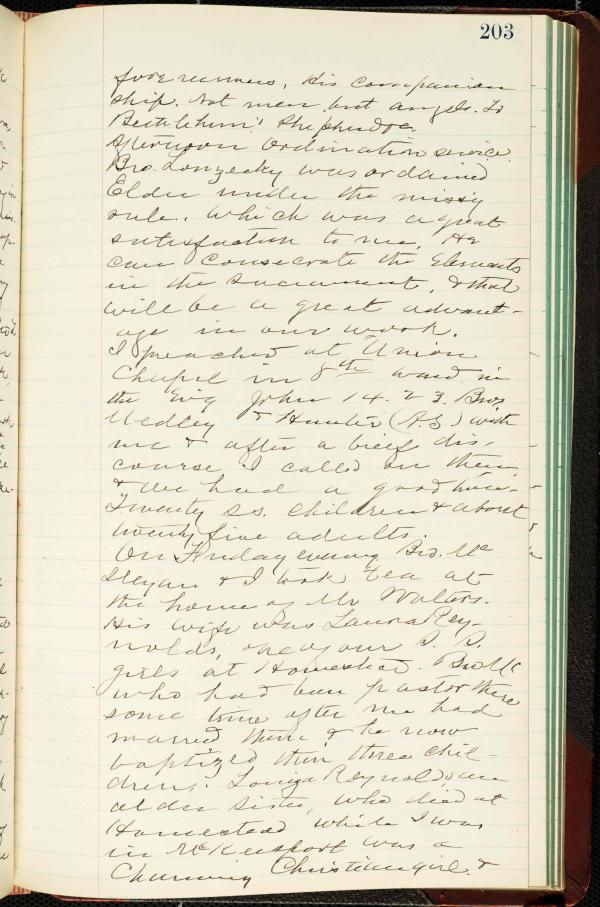 203
forerunners, His companion
ship. Not men but angels. To
Bethlehem! Shepherds &c.
Afternoon Ordination service.
Bro. Longecky was ordained
Elder under the missy
rule. Which was a great
satisfaction to me, He
can consecrate the Elements
in the Sacrament, & that
will be a great advant-
age in our work.
I preached at Union
Chapel in 8th ward in
the Evg John 14. 2 3. Bros
Medley & Hunter (A.S.) with
me & after a brief dis,
course I called on them
& we had a good time.
Twenty S.S. Children & about
twenty five adults.
On Friday evening Bro. Mc
& I took tea at
the home of Mr Walters.
His wife was Laura Rey-
nolds, one of our S. S.
girls at Homestead. Bro Mc
who had been pastor there
some time after me had
married them & he now
baptized their three chil-
dren. Louiza Reynolds, an
older sister, who died at
Homestead while I was
in McKeesport was a
Charming Christian girl &